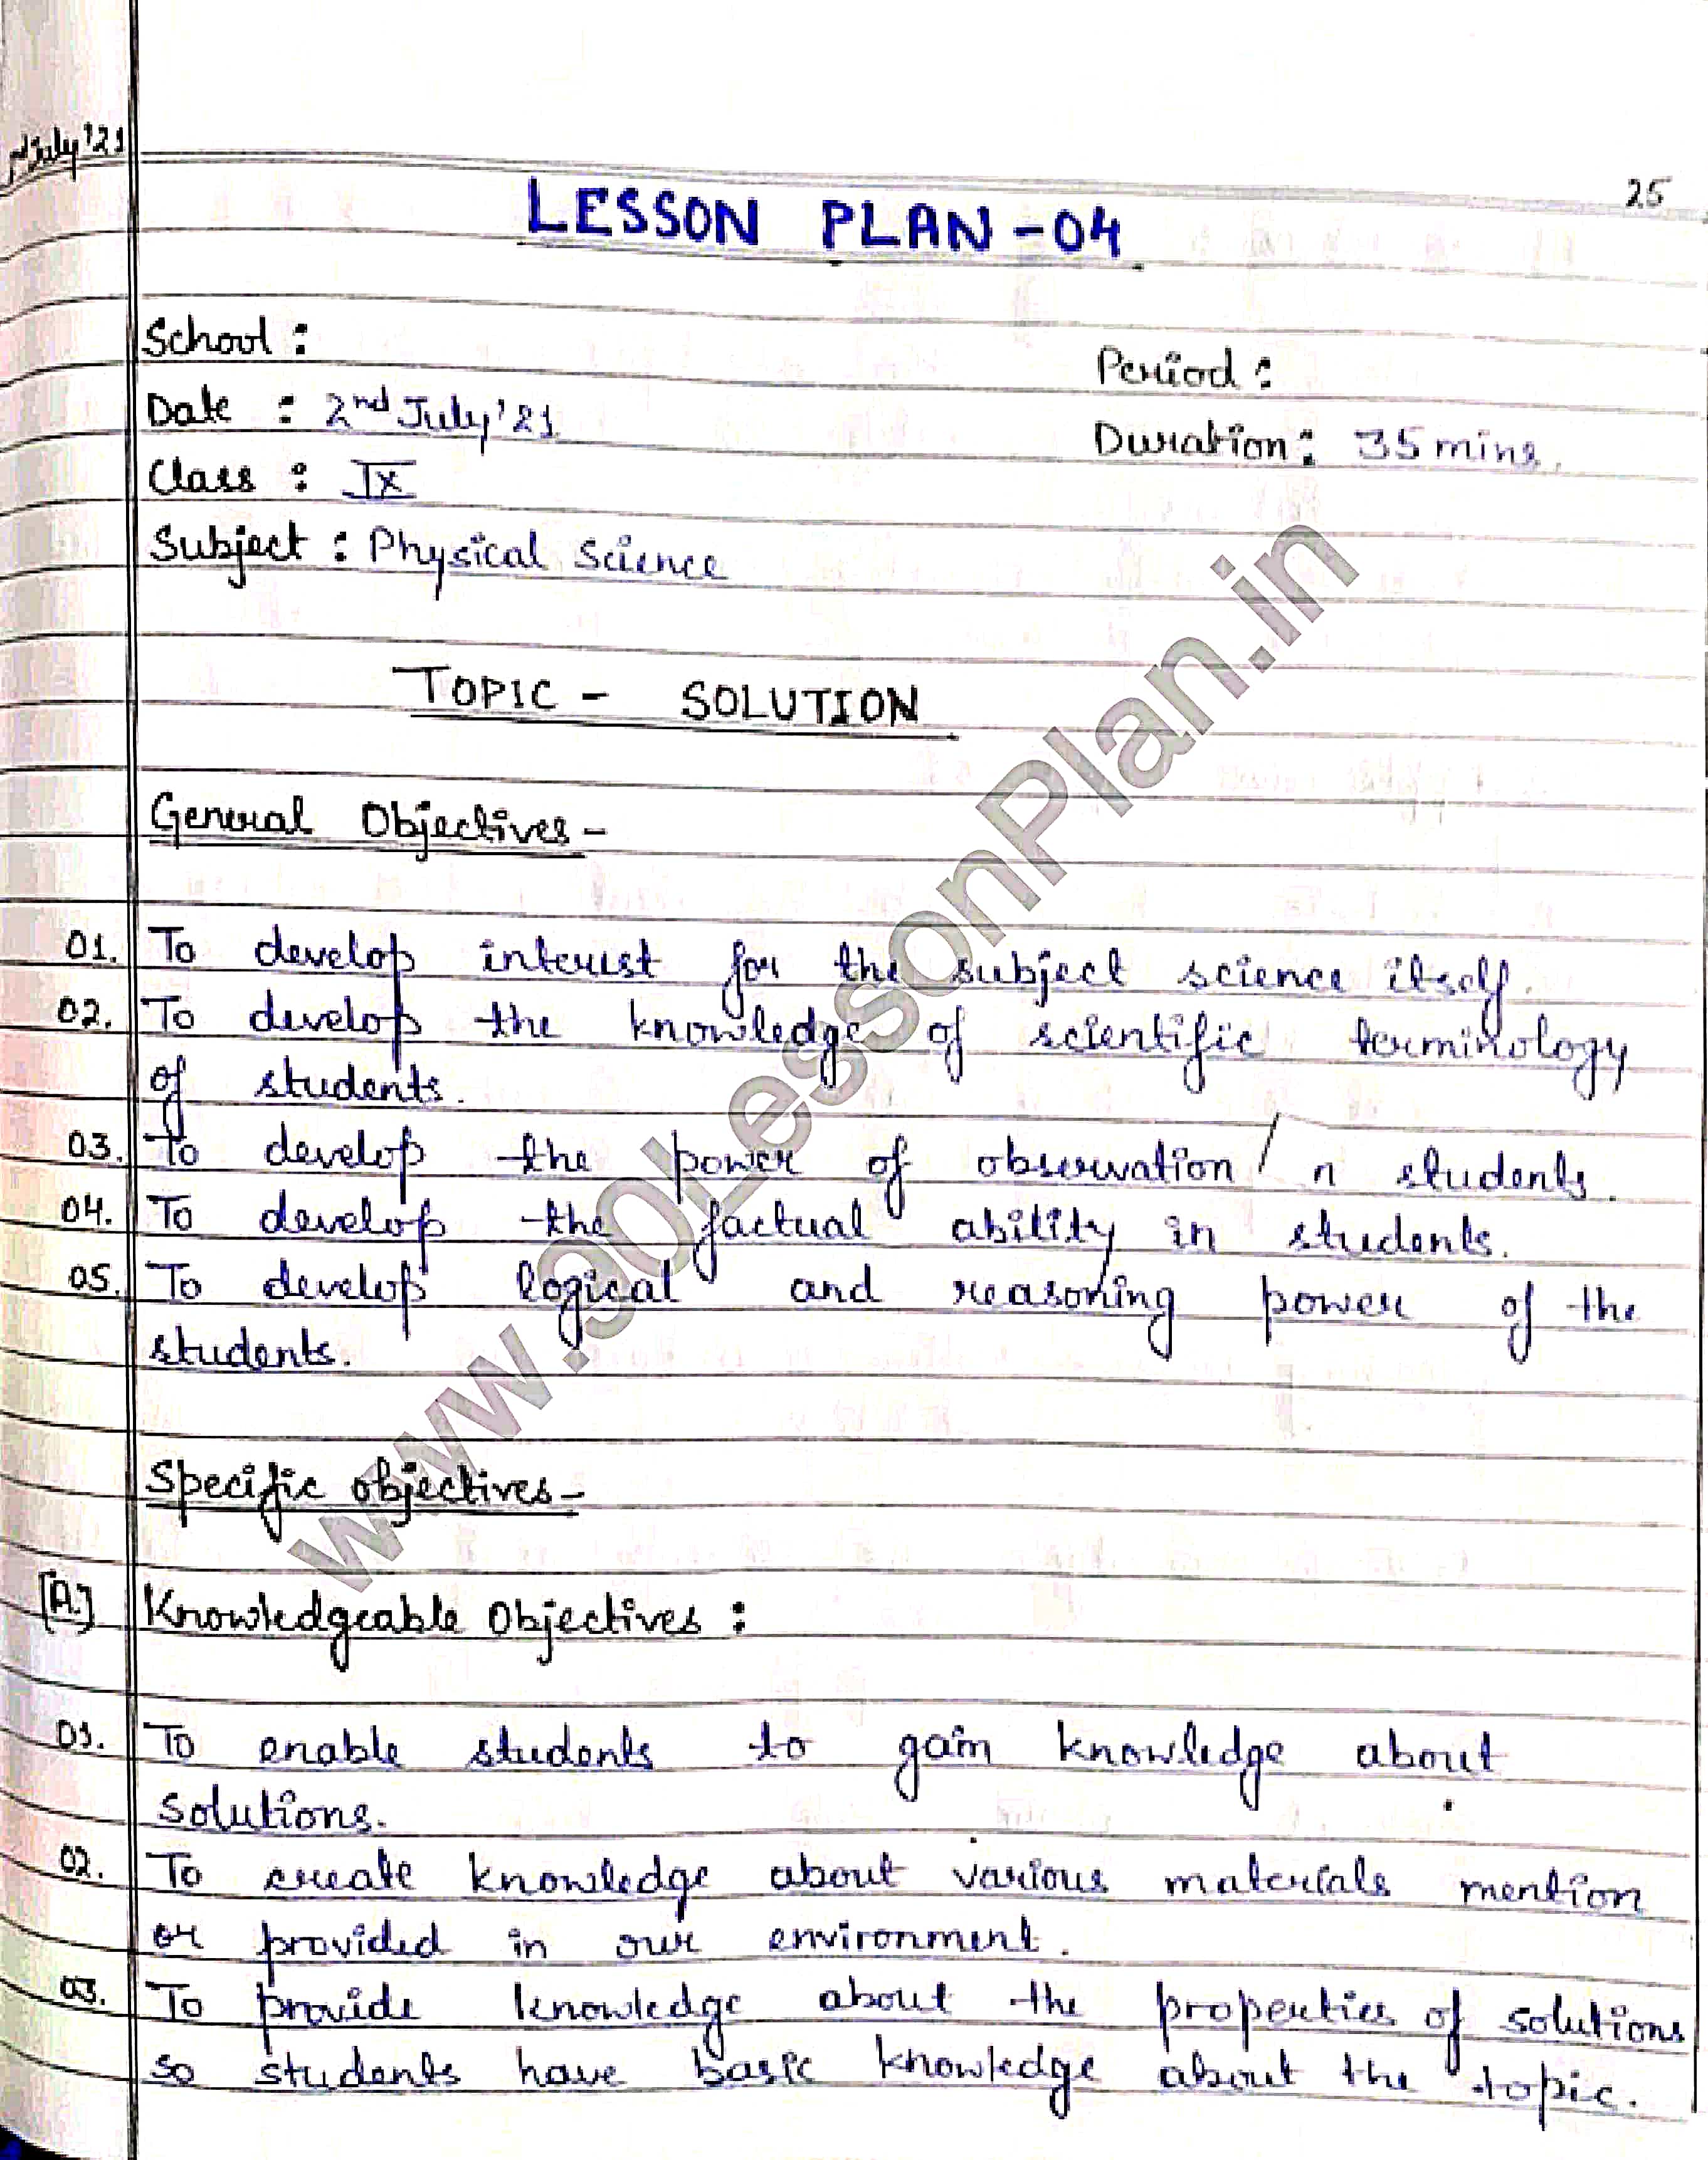 July '21
25
LESSON PLAN - 04
School :
Period :
Date : 2nd July '21
Duration : 35 mins.
Class : IX
Subject : Physical Science
TOPIC - SOLUTION
General Objectives -
01. To develop interest for the subject science itself.
02. To develop the knowledge of scientific terminology
of students.
03. To develop the power of observation / n students.
04. To develop the factual ability in students.
05. To develop logical and reasoning power of the
students.
Specific objectives -
[A.] Knowledgeable Objectives :
01. To enable students to gain knowledge about
solutions.
02. To create knowledge about various materials mention
or provided in our environment.
03. To provide knowledge about the properties of solutions
so students have basic knowledge about the topic.